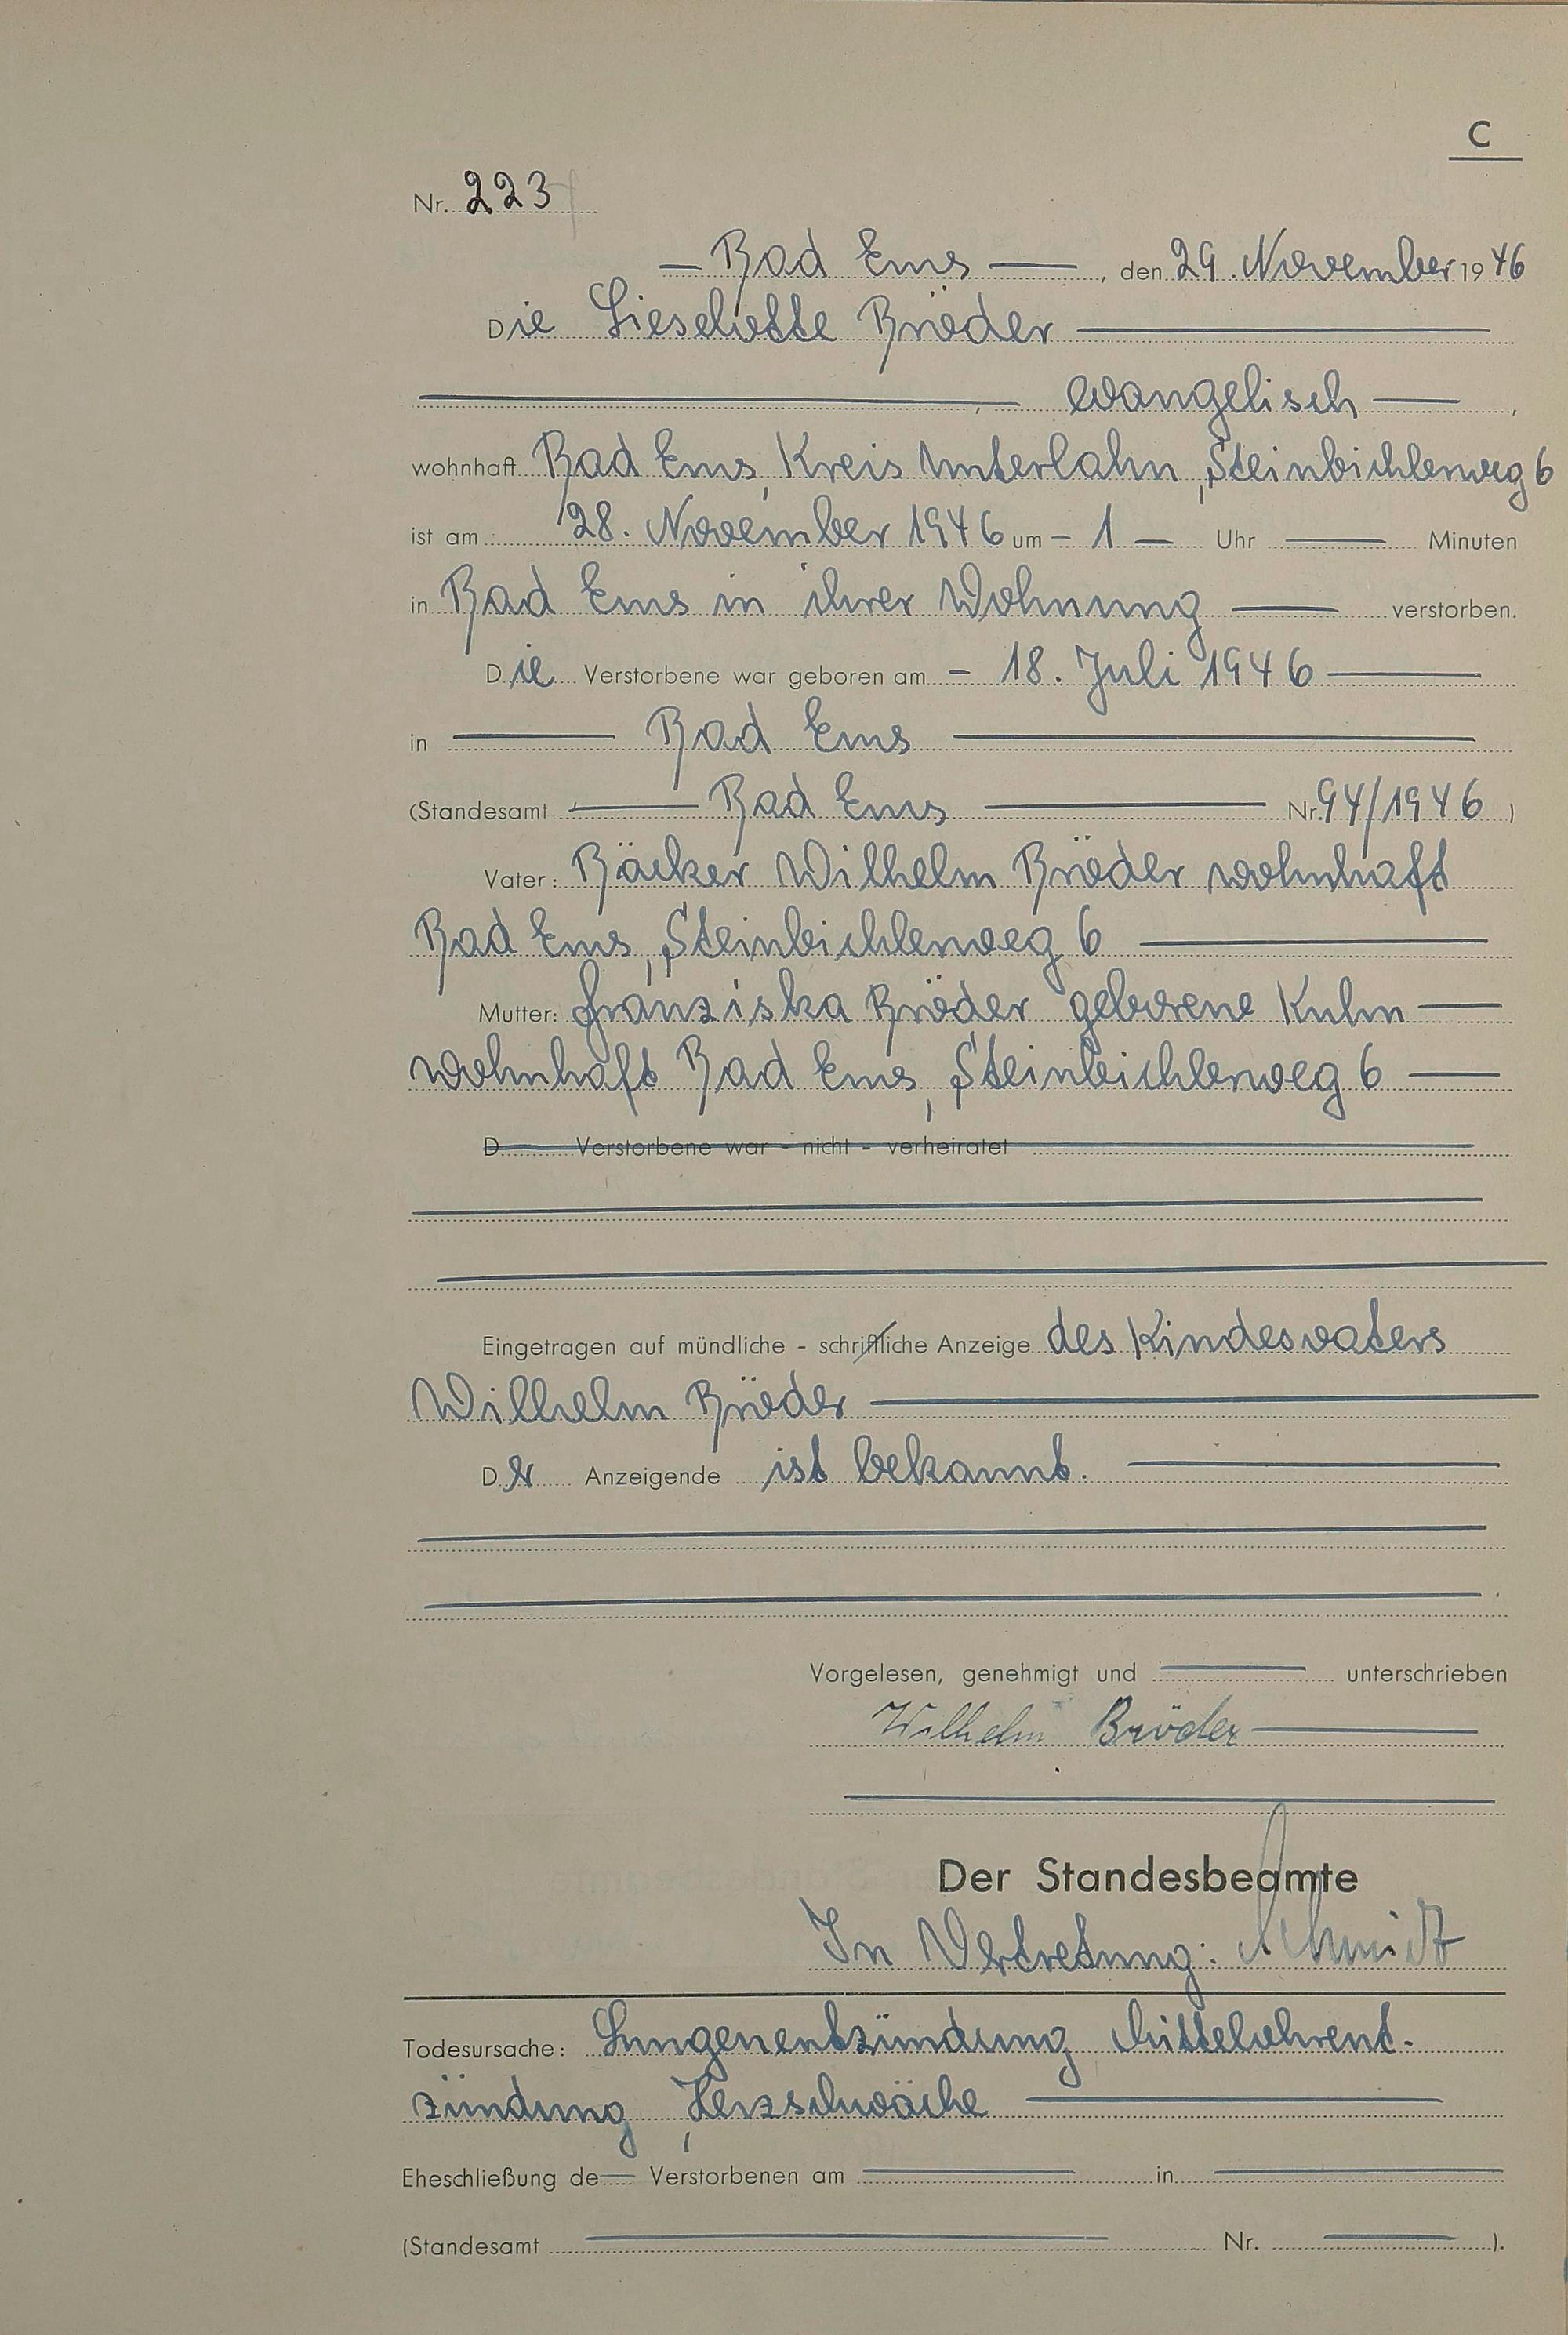 C
Nr. 223
— Bad Ems —, den 29. November 1946
Die Lieselotte Bröder
evangelisch —,
wohnhaft Bad Ems, Kreis Unterlahn, Steinbichlerweg 6
ist am 28. November 1946 um – 1 — Uhr — Minuten
in Bad Ems in ihrer Wohnung — verstorben.
Die Verstorbene war geboren am – 18. Juli 1946 —
in — Bad Ems —
(Standesamt — Bad Ems — Nr. 94/1946)
Vater: Bäcker Wilhelm Bröder wohnhaft
Bad Ems, Steinbichlerweg 6 —
Mutter: Franziska Bröder geborene Kuhn —
wohnhaft Bad Ems, Steinbichlerweg 6 —
D Verstorbene war - nicht - verheiratet
Eingetragen auf mündliche - schriftliche Anzeige des Kindesvaters
Wilhelm Bröder —
Der Anzeigende ist bekannt. —
Vorgelesen, genehmigt und — unterschrieben
Wilhelm Bröder —
Der Standesbeamte
In Vertretung: Schmidt
Todesursache: Lungenentzündung Mittelohrent-
zündung, Herzschwäche —
Eheschließung de— Verstorbenen am — in —
(Standesamt — Nr. —).